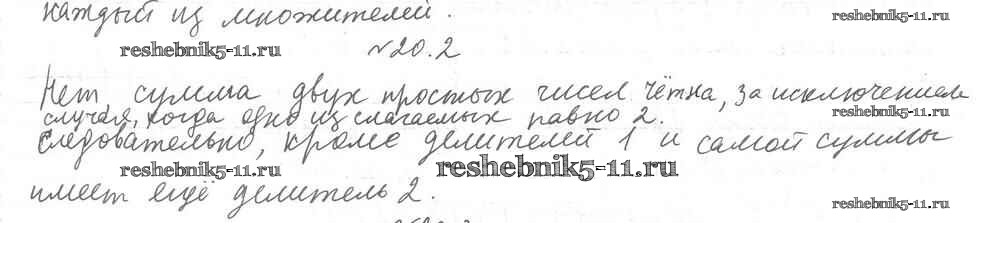 каждый из множителей.
reshebnik5-11.ru
reshebnik5-11.ru
№20.2
Нет, сумма двух простых чисел чётна, за исключением
случая, когда одно из слагаемых равно 2.
Следовательно, кроме делителей 1 и самой суммы
reshebnik5-11.ru
reshebnik5-11.ru
имеет ещё делитель 2.
reshebnik5-11.ru